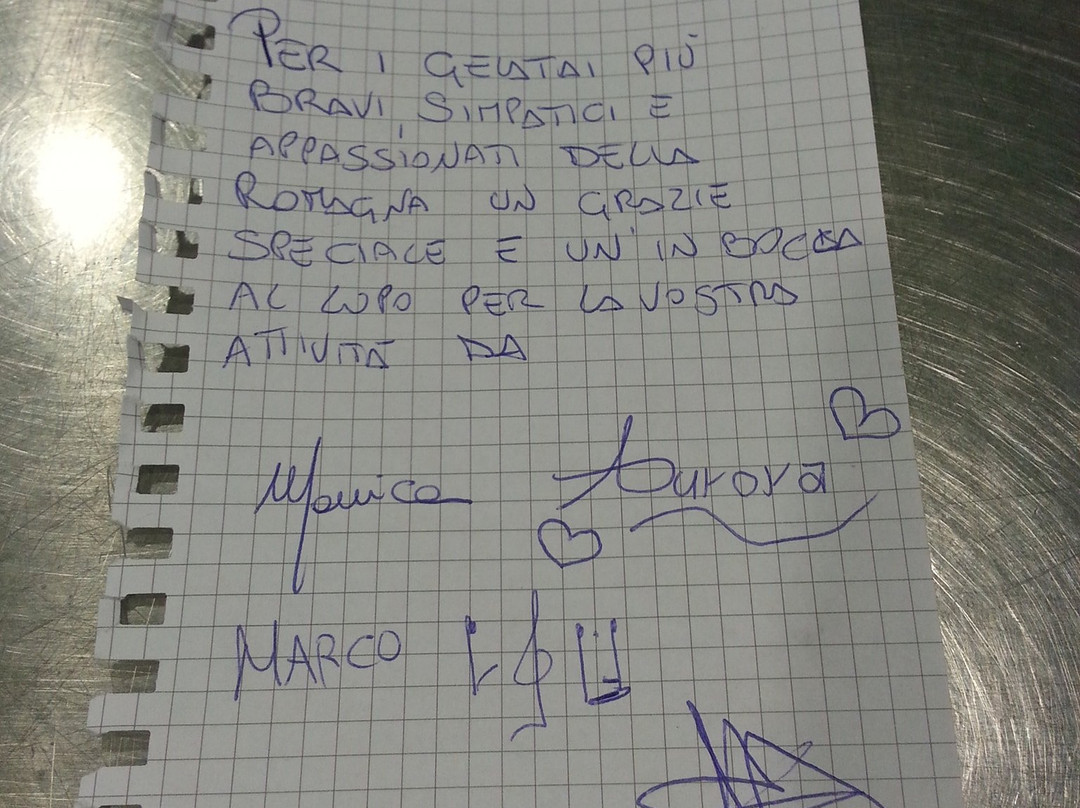 PER I GELATAI PIÙ
BRAVI, SIMPATICI E
APPASSIONATI DELLA
ROMAGNA UN GRAZIE
SPECIALE E UN' IN BOCCA
AL LUPO PER LA VOSTRA
ATTIVITÀ DA
Monica Aurora
MARCO